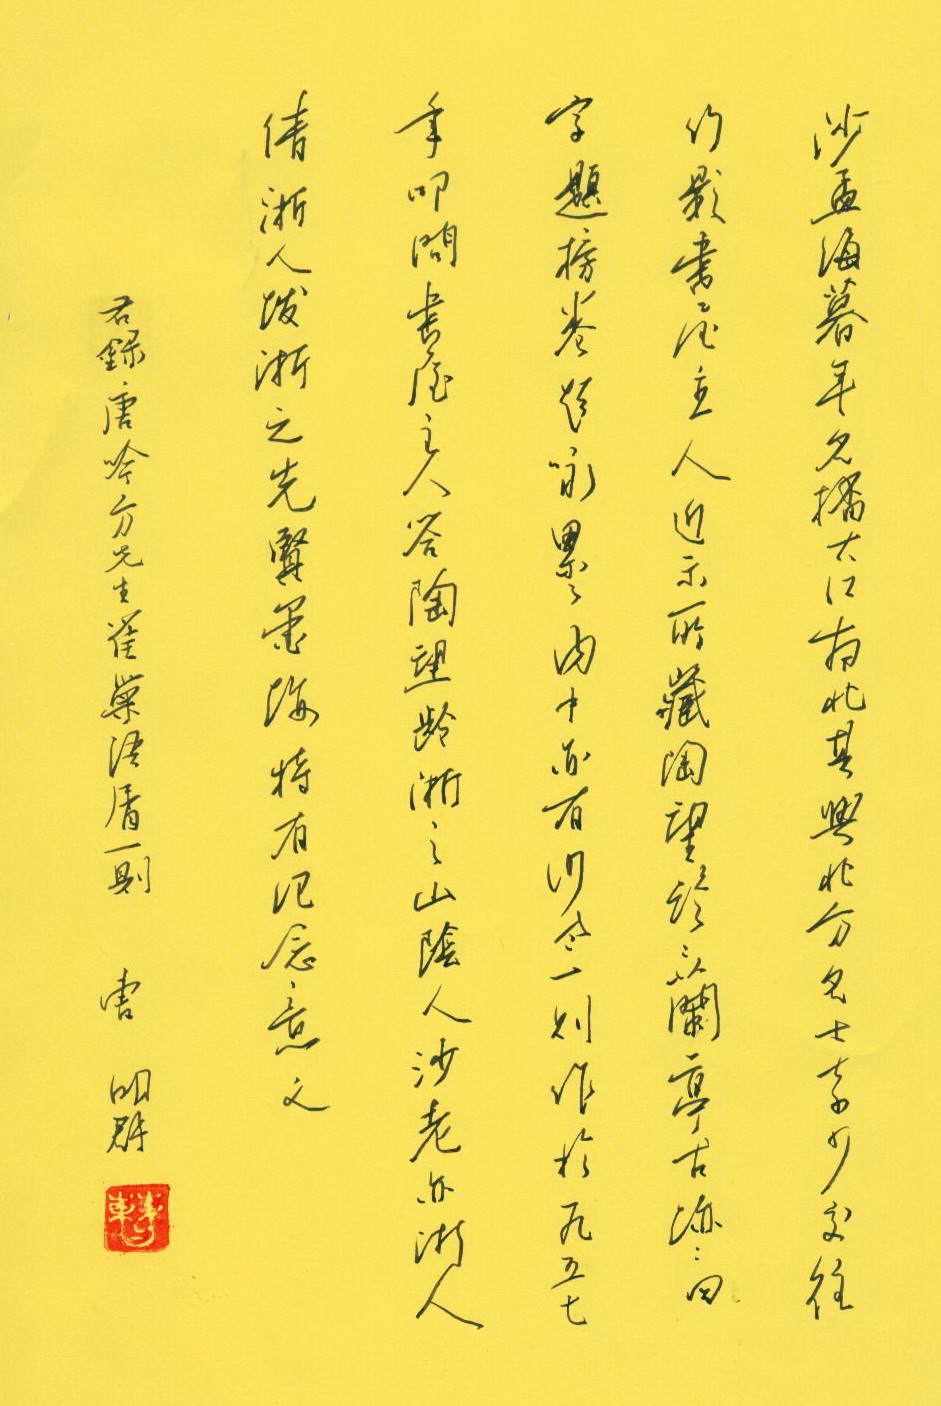 沙孟海暮年名播大江南北其與北方名士亦多交往
竹影書屋主人近示所藏陶望齡蘭亭古迹
字題榜卷題咏累累內中亦有沙氏一則作於九五七
年叩問書屋主人答陶望齡浙之山陰人沙老亦浙人
倩浙人拔浙之先賢墨海特有記念意文
右錄唐吟方先生雀巢語屑一則 明群